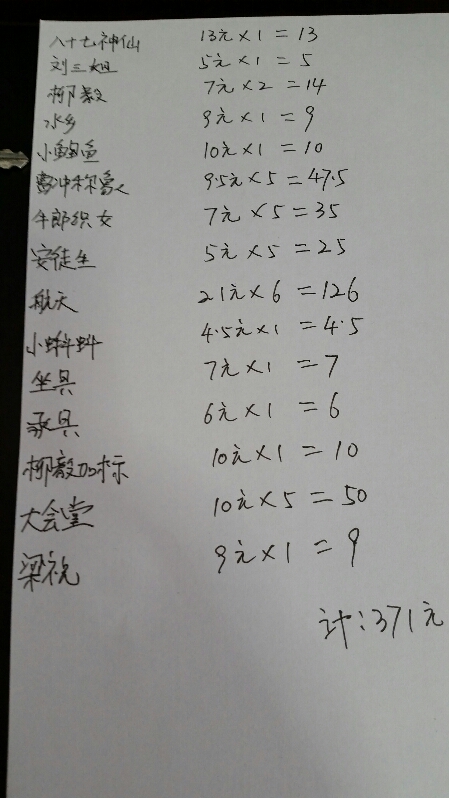 八十七神仙 13元×1=13
刘三姐 5元×1=5
柳毅 7元×2=14
水乡 9元×1=9
小鲤鱼 10元×1=10
曹冲称象 9.5元×5=47.5
牛郎织女 7元×5=35
安徒生 5元×5=25
航天 21元×6=126
小蝌蚪 4.5元×1=4.5
坐具 7元×1=7
承具 6元×1=6
柳毅加标 10元×1=10
大会堂 10元×5=50
梁祝 9元×1=9
计:371元